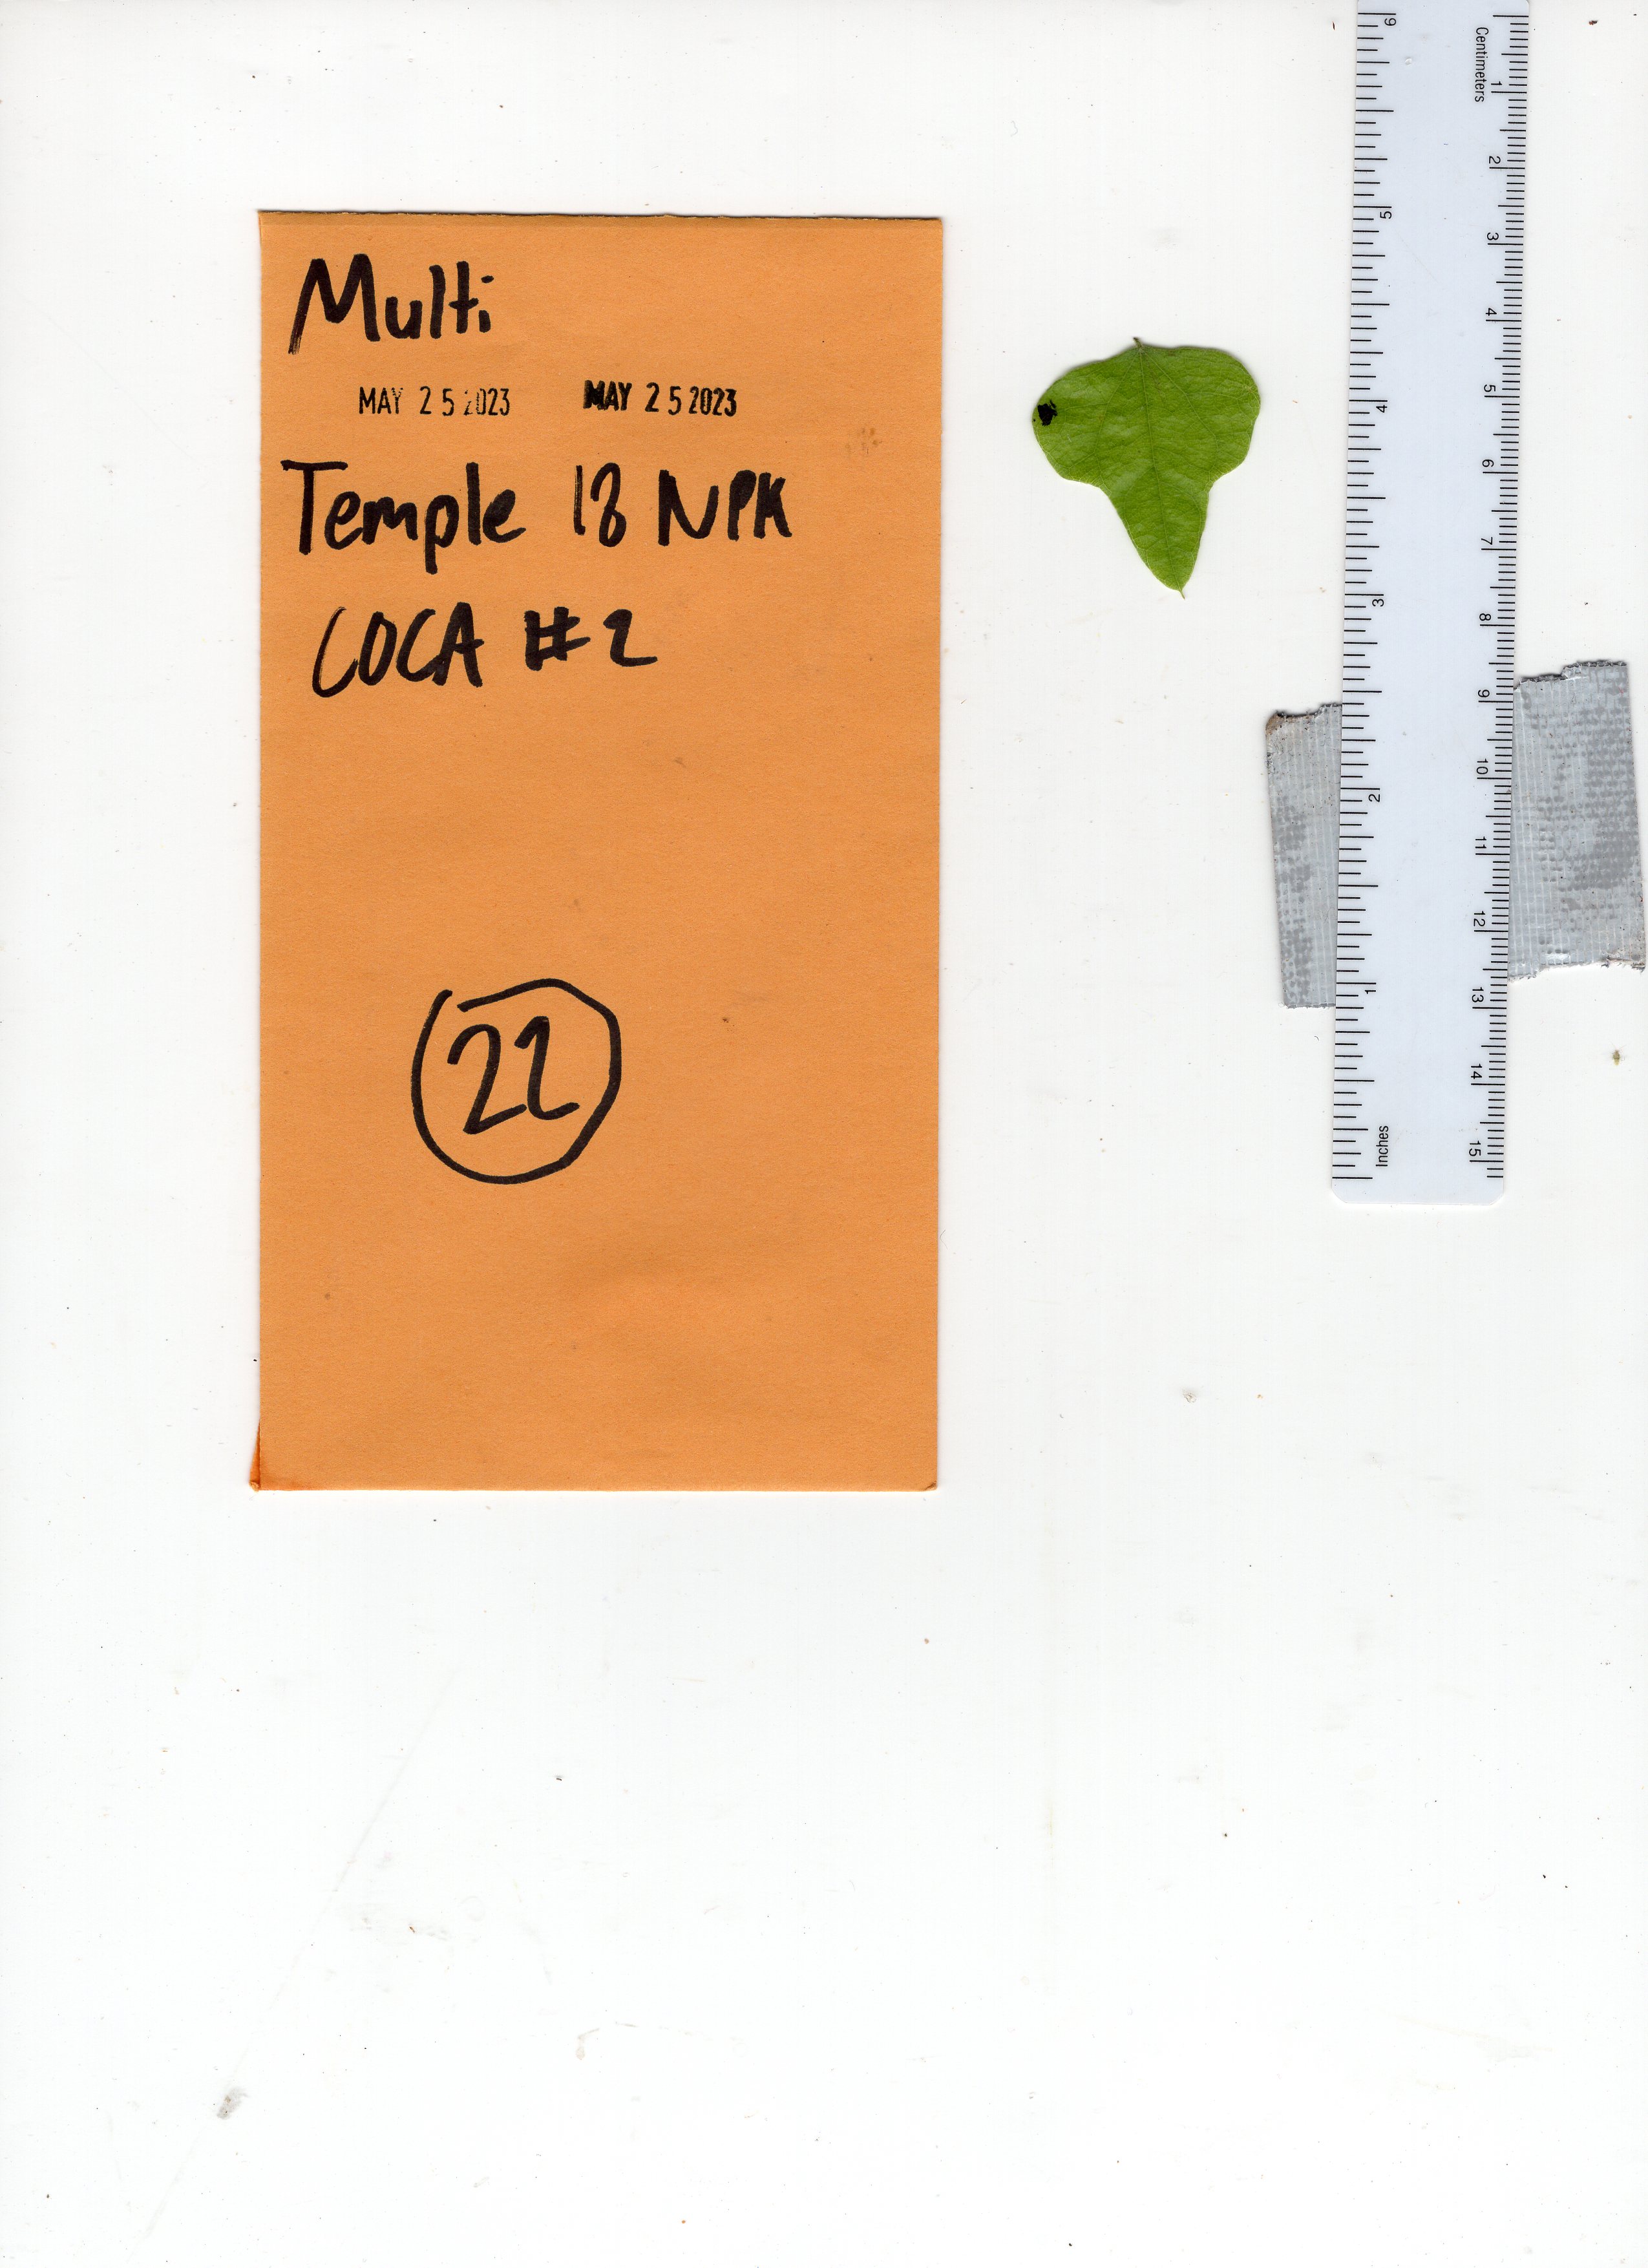 Multi
MAY 25 2023 MAY 25 2023
Temple 18 NPK
COCA #2
22
Centimeters
1
2
3
4
5
6
7
8
9
10
11
12
13
14
15
6
5
4
3
2
1
Inches